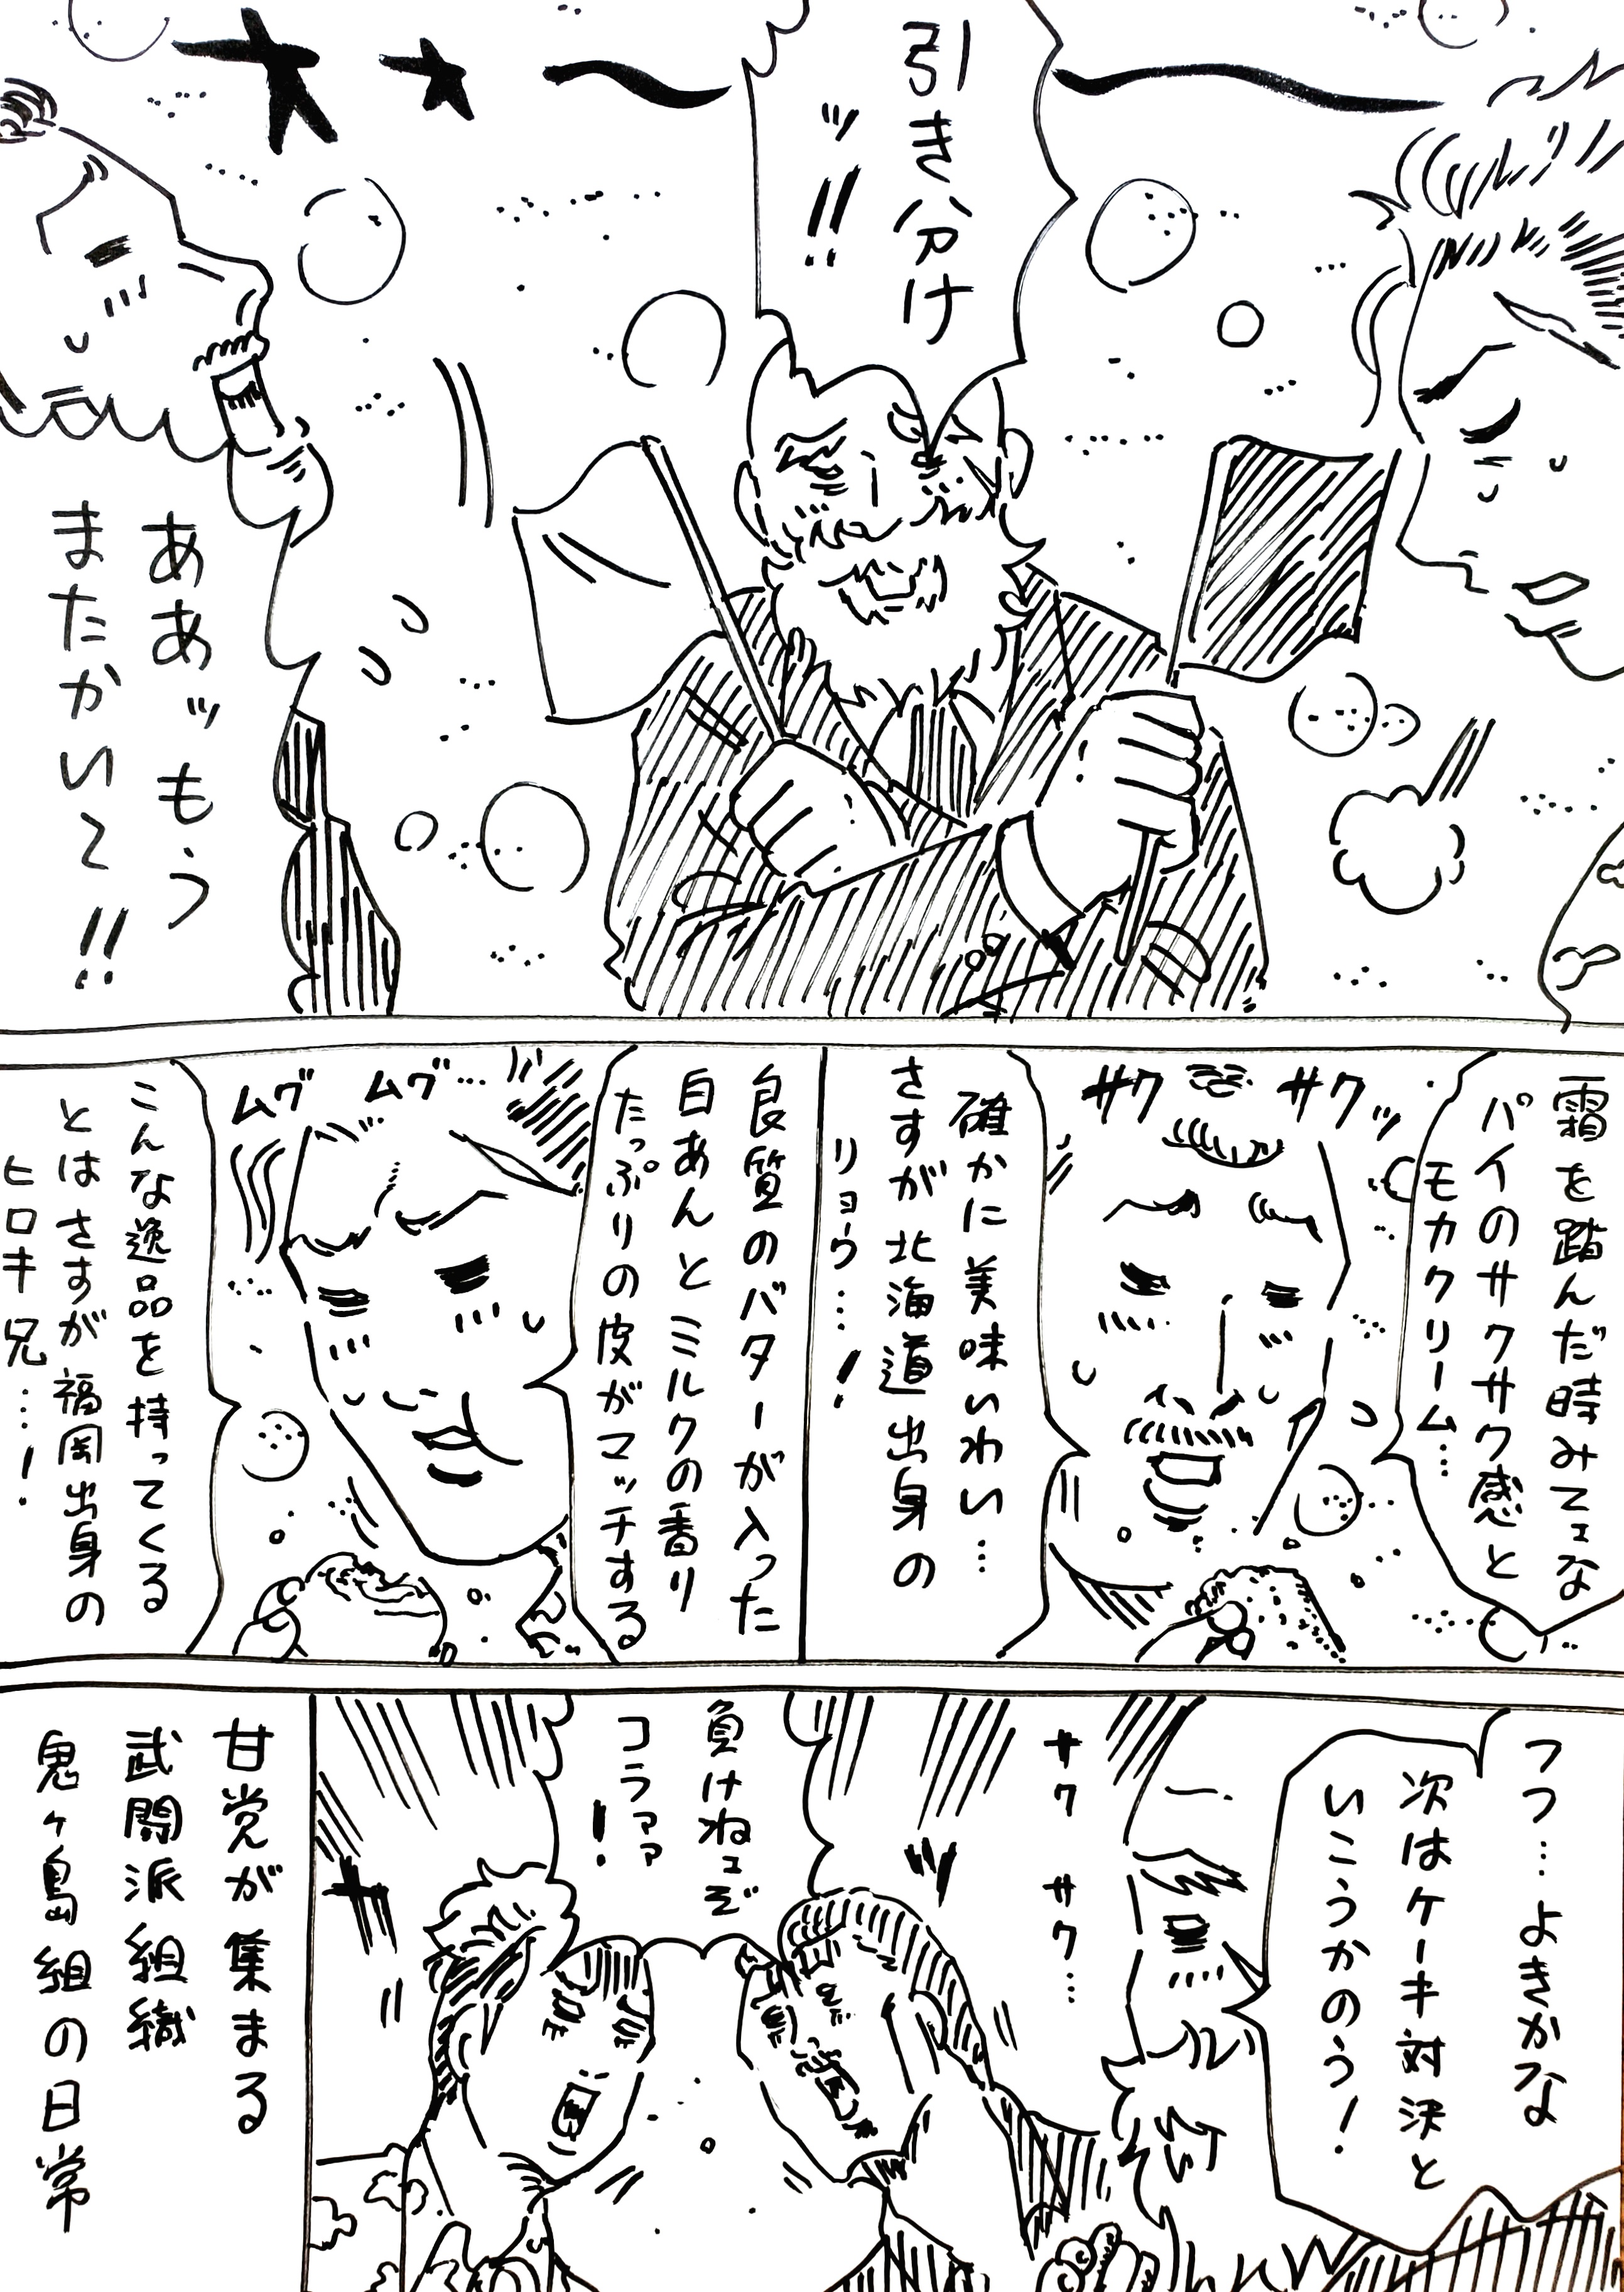 引き分け
ッ!!
ああッもう
またかいて!!
霜を踏んだ時みてェな
パイのサクサク感と
モカクリーム…
サクサクッ
確かに美味いわい…
さすが北海道出身の
リョウ…!
良質のバターが入った
白あんとミルクの香り
たっぷりの皮がマッチする
ムグムグ…
こんな逸品を持ってくる
とはさすが福岡出身の
ヒロキ兄…!
フフ…よきかな
次はケーキ対決と
いこうかのう!
サクサク…
負けねェぞ
コラァァ!
甘党が集まる
武闘派組織
鬼ヶ島組の日常